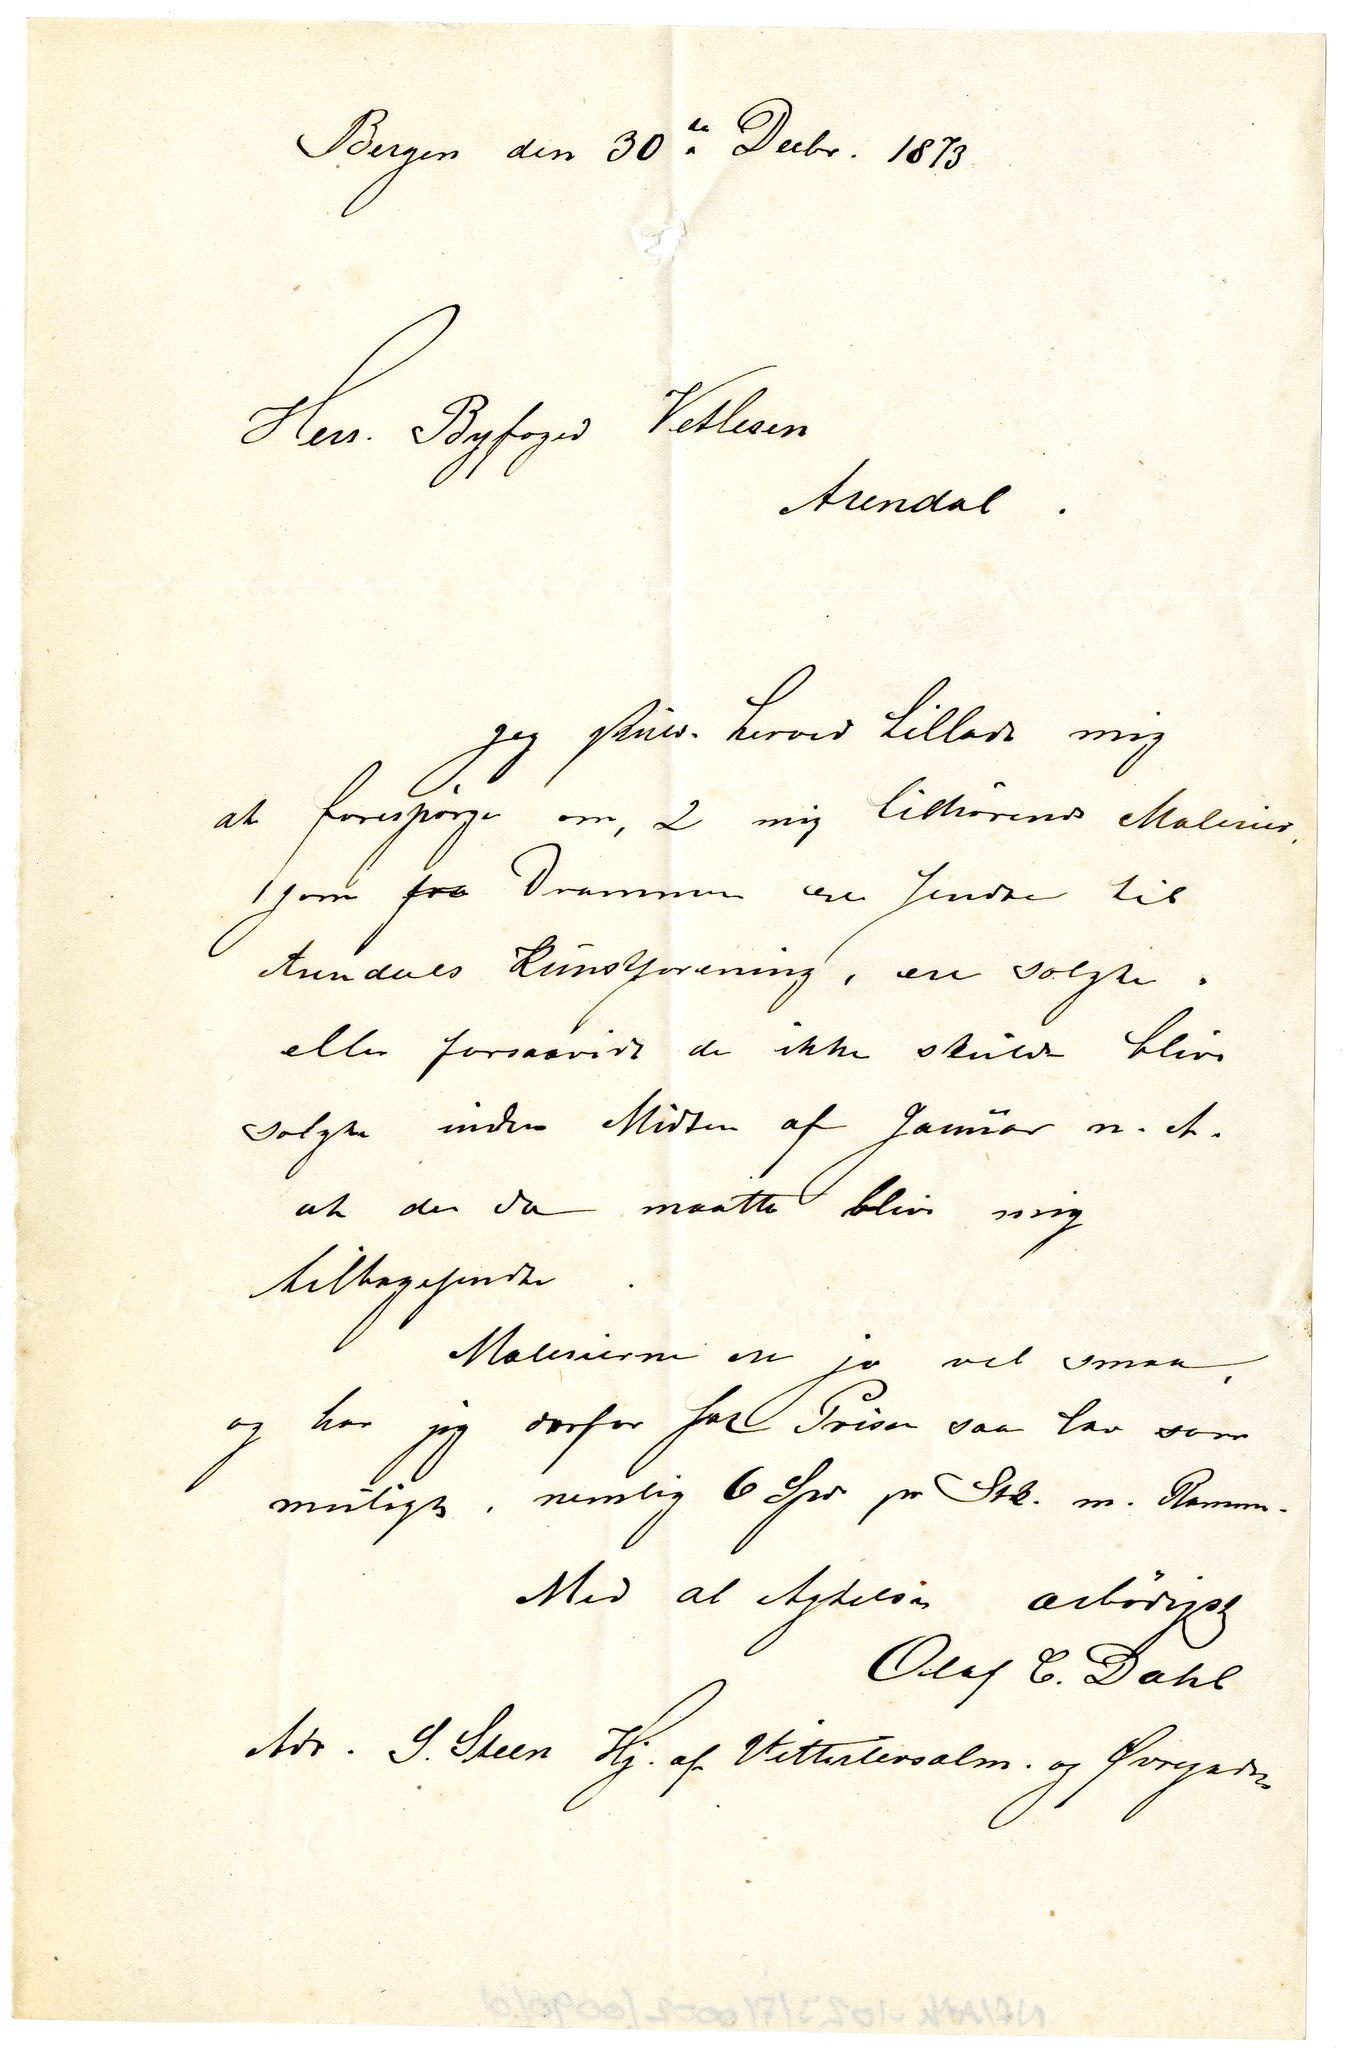 Bergen den 30te Decbr. 1873
Herr. Byfoged Vetlesen
Arendal.
Jeg skuld. herved tillade mig
at forespørge om, 2 mig tilhørende Malerier,
som fra Drammen ere sendte til
Arendals Kunstforening, ere solgte.
eller forsaavidt de ikke skulde blive
solgte inden Midten af Januar n. A.
at de da maatte blive mig
tilbagesendte.
Malerierne ere jo vel smaa,
og har jeg derfor sat Prisen saa lav som
muligt, nemlig 6 Spd pr Stk. m. Ramme.
Med al Agtelse ærbødigst
Olaf C. Dahl
Adr. S. Steen Hj. af Vitterlevsalm. og Øvregaden